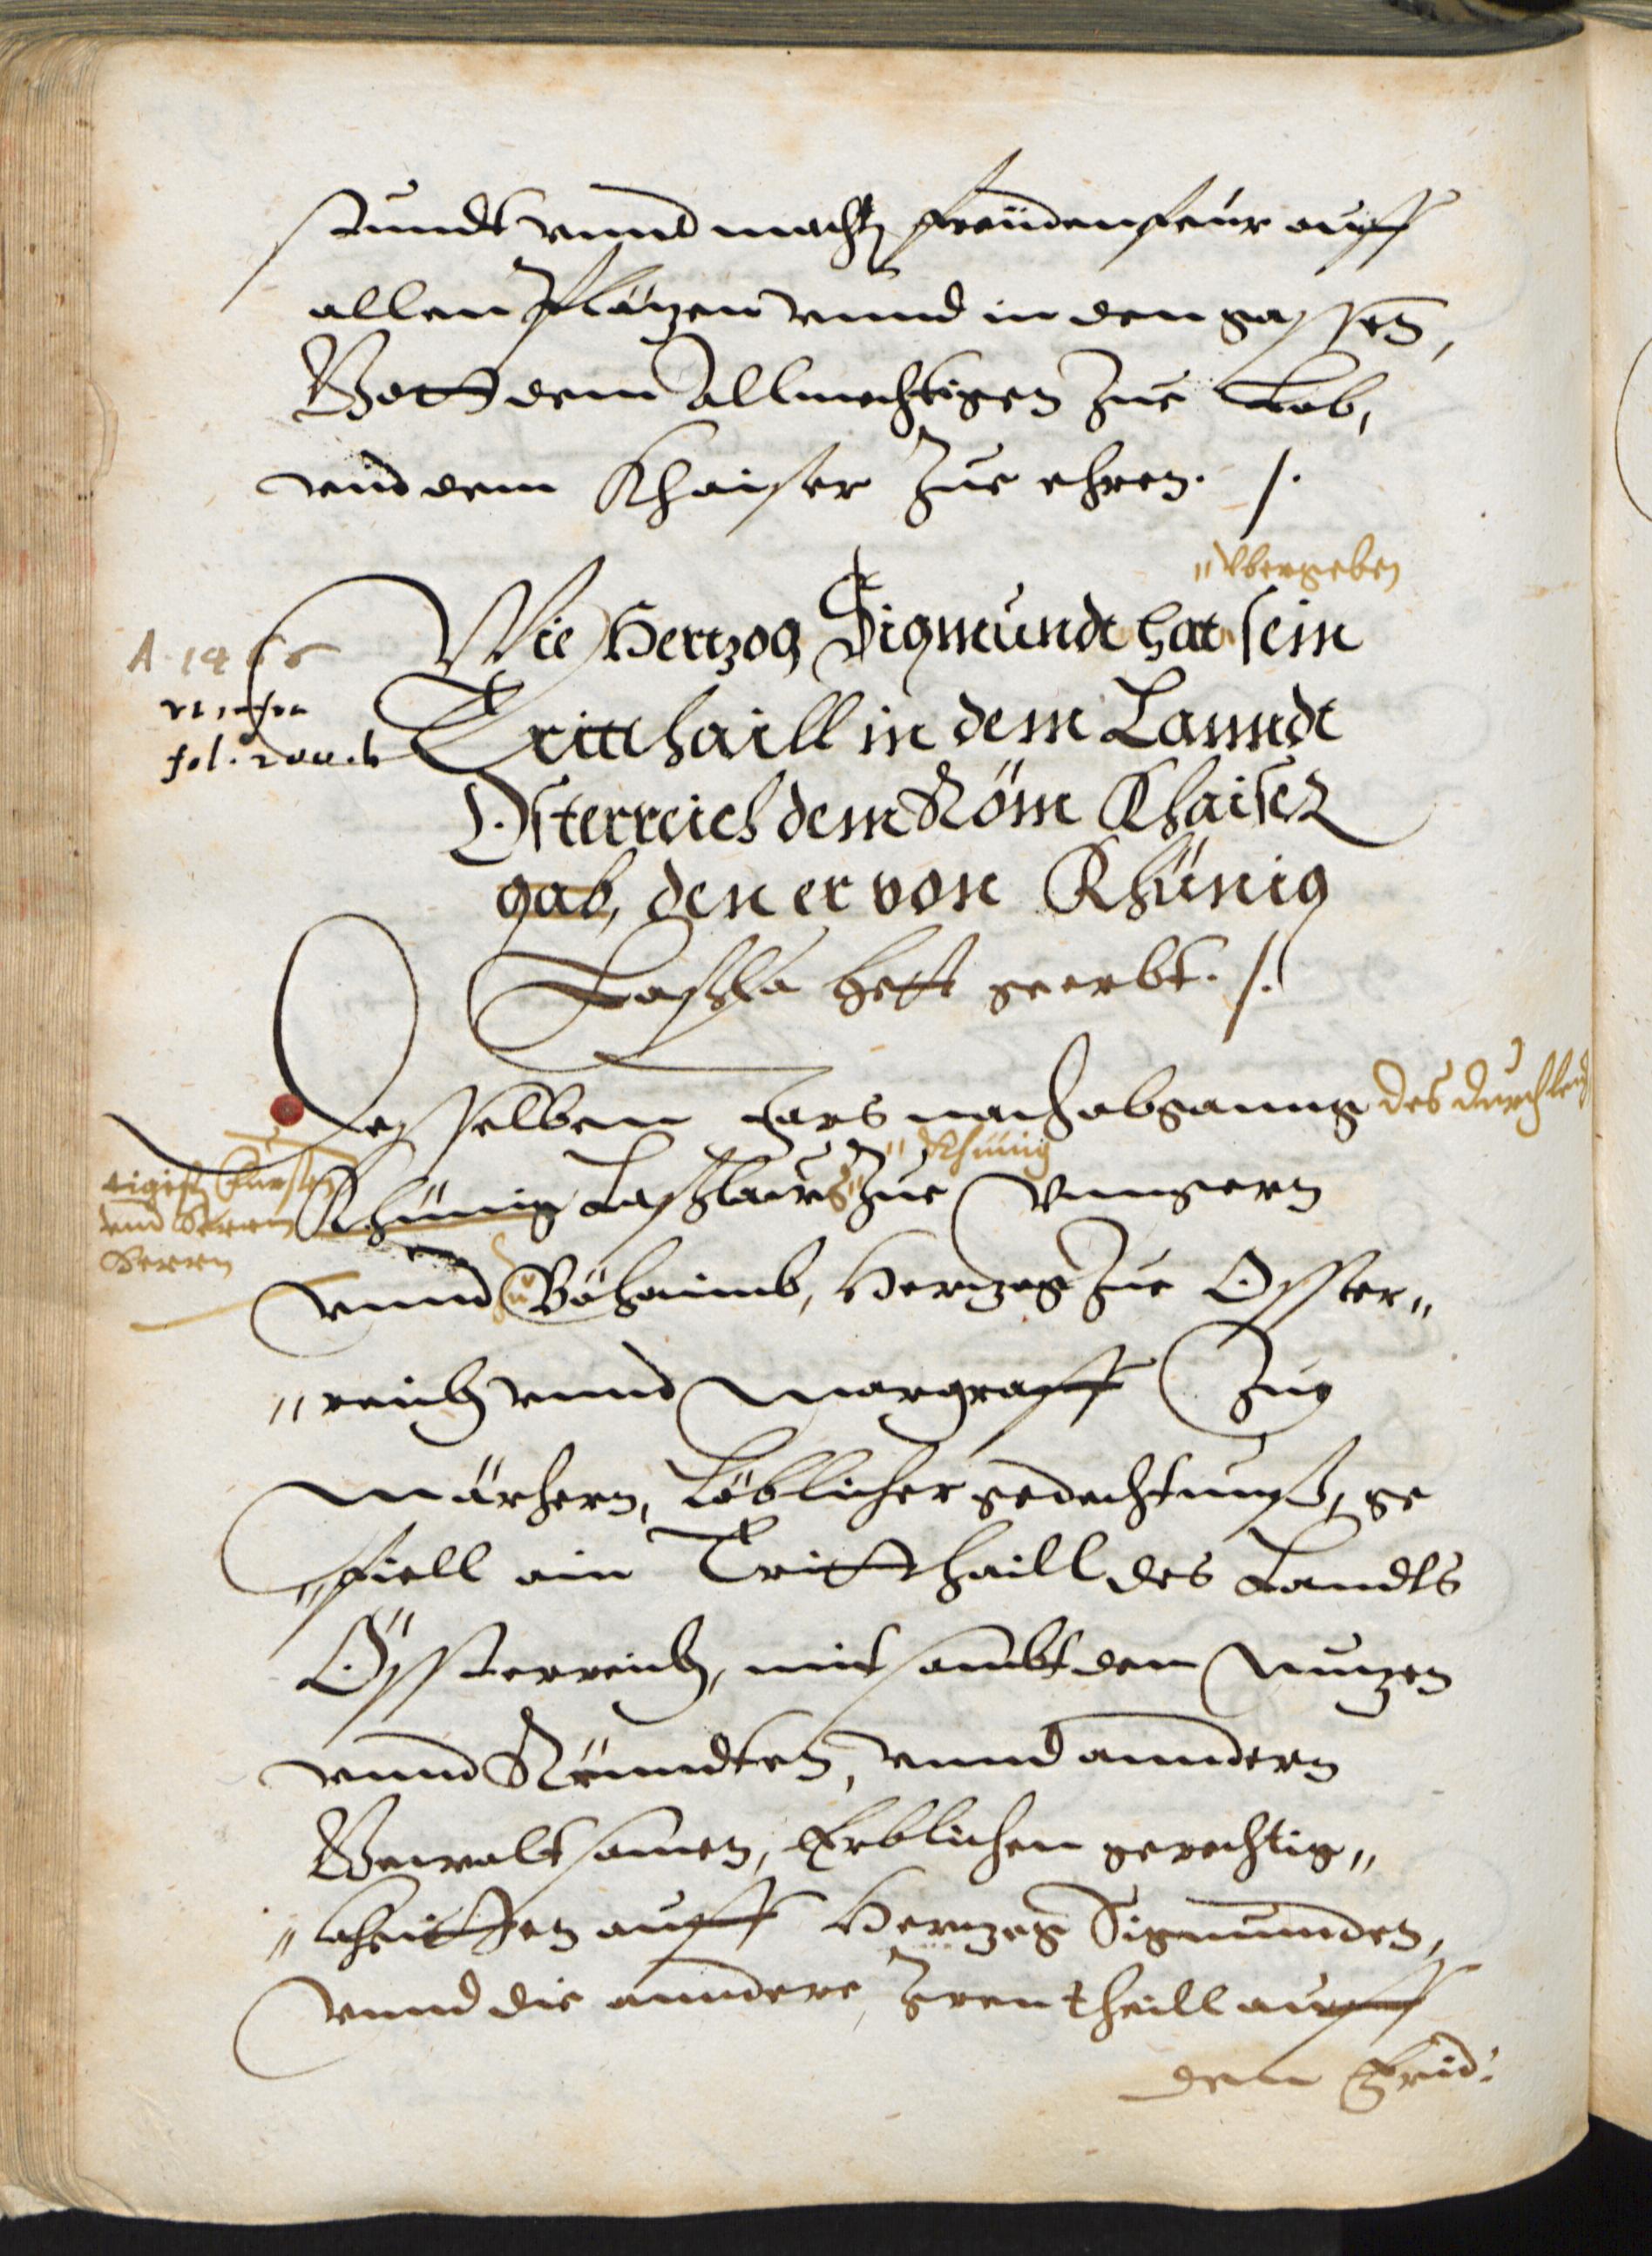 stundt vnnd macht freüdenfeür auff
allen Plätzen vnnd in den gassen,
Gott dem Allmechtigen Zue Lob,
vnd dem Khaiser Zue ehren. /.
" Vbergeben
Wie Hertzog Sigmundt hat sein
A. 14
fol.
Tritthaill in dem Lanndt
Österreich dem Röm Khaiser
gab, den er von Khünig
Laszla hett geerbt. /.
Desselben Jars nach abganng des durchleuch
tigist Fürsten
vnd Herrn
Herrn
" Khünig
Khünig Laszlaus Zue Vnngern
vnnd zu Böhaimb, Hertzog Zue Osster"
"reich vnnd Margraff Zue
Märhern, Löblicher gedechtnuß, ge
"fiell ain Tritthaill des Landts
Össterreich, mit sambt den Nutzen
vnnd Rënndten, vnnd anndern
Gewaltsamen, Erblichen gerechtig"
"kheitten auff Hertzog Sigmunden,
vnnd die anndere Zwen theill auff
den Frid: